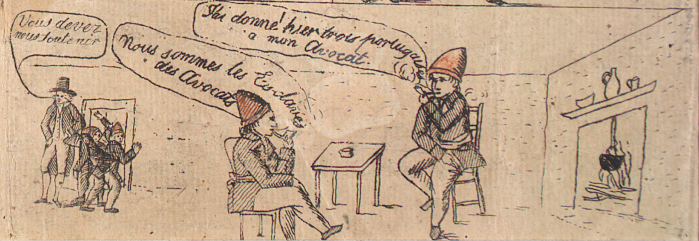 Vous devez
nous soutenir
Nous sommes les Esclaves
des Avocats
J'ai donné hier trois portugaises
a mon Avocat